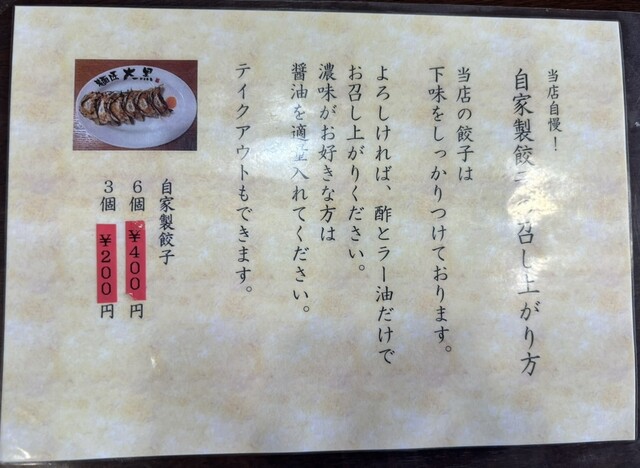 当店自慢！
自家製餃子 召し上がり方
当店の餃子は
下味をしっかりつけております。
よろしければ、酢とラー油だけで
お召し上がりください。
濃味がお好きな方は
醤油を適量入れてください。
テイクアウトもできます。
自家製餃子
６個 ￥４００円
３個 ￥２００円
大黒